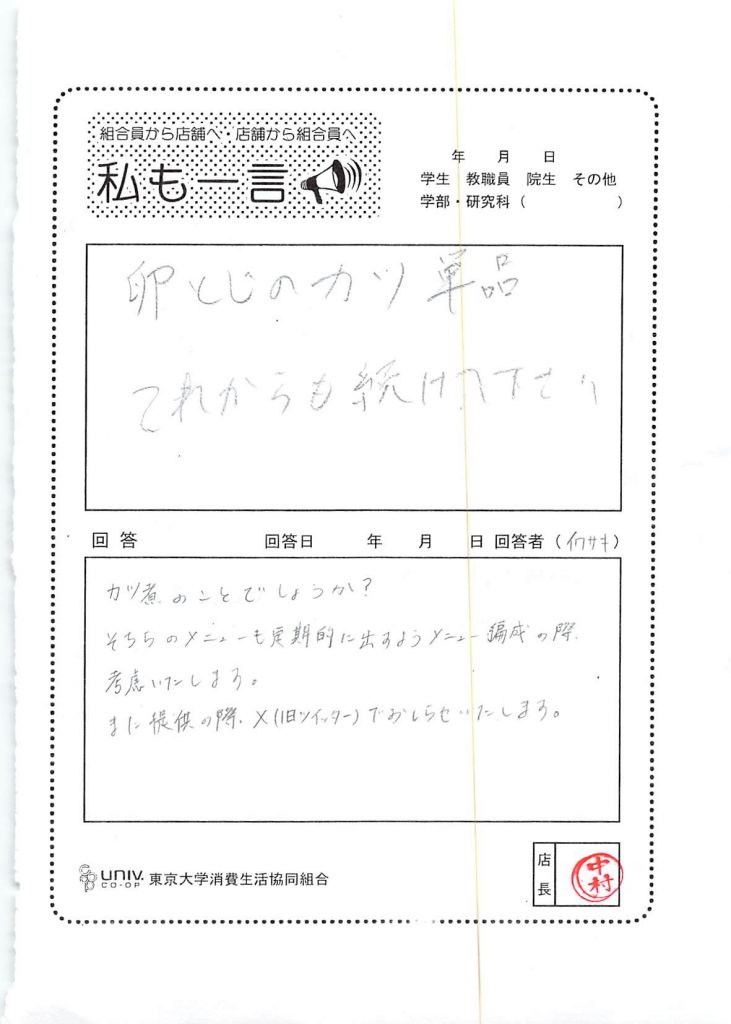 組合員から店舗へ・店舗から組合員へ
私も一言
年 月 日
学生 教職員 院生 その他
学部・研究科( )
卵とじのカツ単品
これからも続けて下さい
回答 回答日 年 月 日 回答者(イワサキ)
カツ煮のことでしょうか?
そちらのメニューも定期的に出すようメニュー編成の際、
考慮いたします。
また提供の際、X(旧ツイッター)でおしらせいたします。
UNIV. CO-OP 東京大学消費生活協同組合
店長
中村